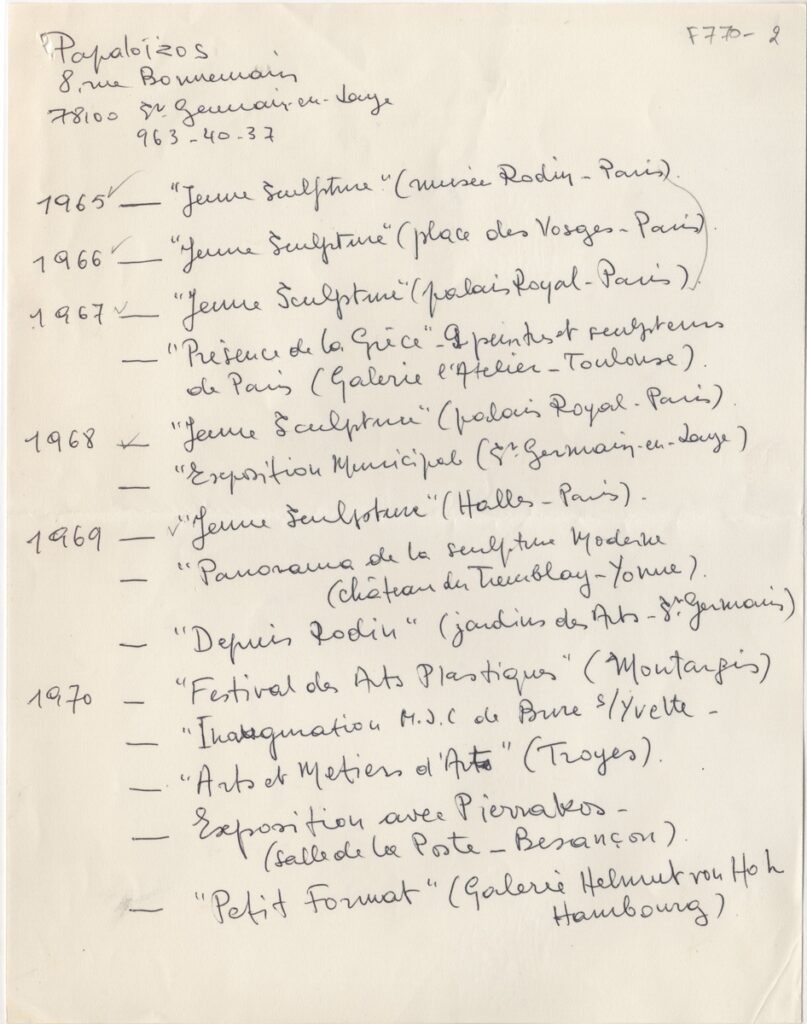 Papaloïzos
F770-2
8, rue Bonnemain
78100 St. Germain-en-Laye
963-40-37
1965 — "Jeune Sculpture" (musée Rodin - Paris).
1966 — "Jeune Sculpture" (place des Vosges - Paris).
1967 — "Jeune Sculpture" (palais Royal - Paris).
— "Présence de la Grèce" - 9 peintres et sculpteurs
de Paris (Galerie l'Atelier - Toulouse).
1968 — "Jeune Sculpture" (palais Royal - Paris).
— "Exposition Municipal (St. Germain-en-Laye)
1969 — "Jeune Sculpture" (Halles - Paris).
— "Panorama de la sculpture Moderne
(château du Tremblay - Yonne).
— "Depuis Rodin" (jardins des Arts - St. Germain)
1970 — "Festival des Arts Plastiques" (Montargis)
— "Inauguration M.J.C de Bure s/Yvette -
— "Arts et Metiers d'Art" (Troyes).
— Exposition avec Pierrakos -
(salle de la Poste - Besançon).
— "Petit Format" (Galerie Helmut von Hoh
Hambourg)